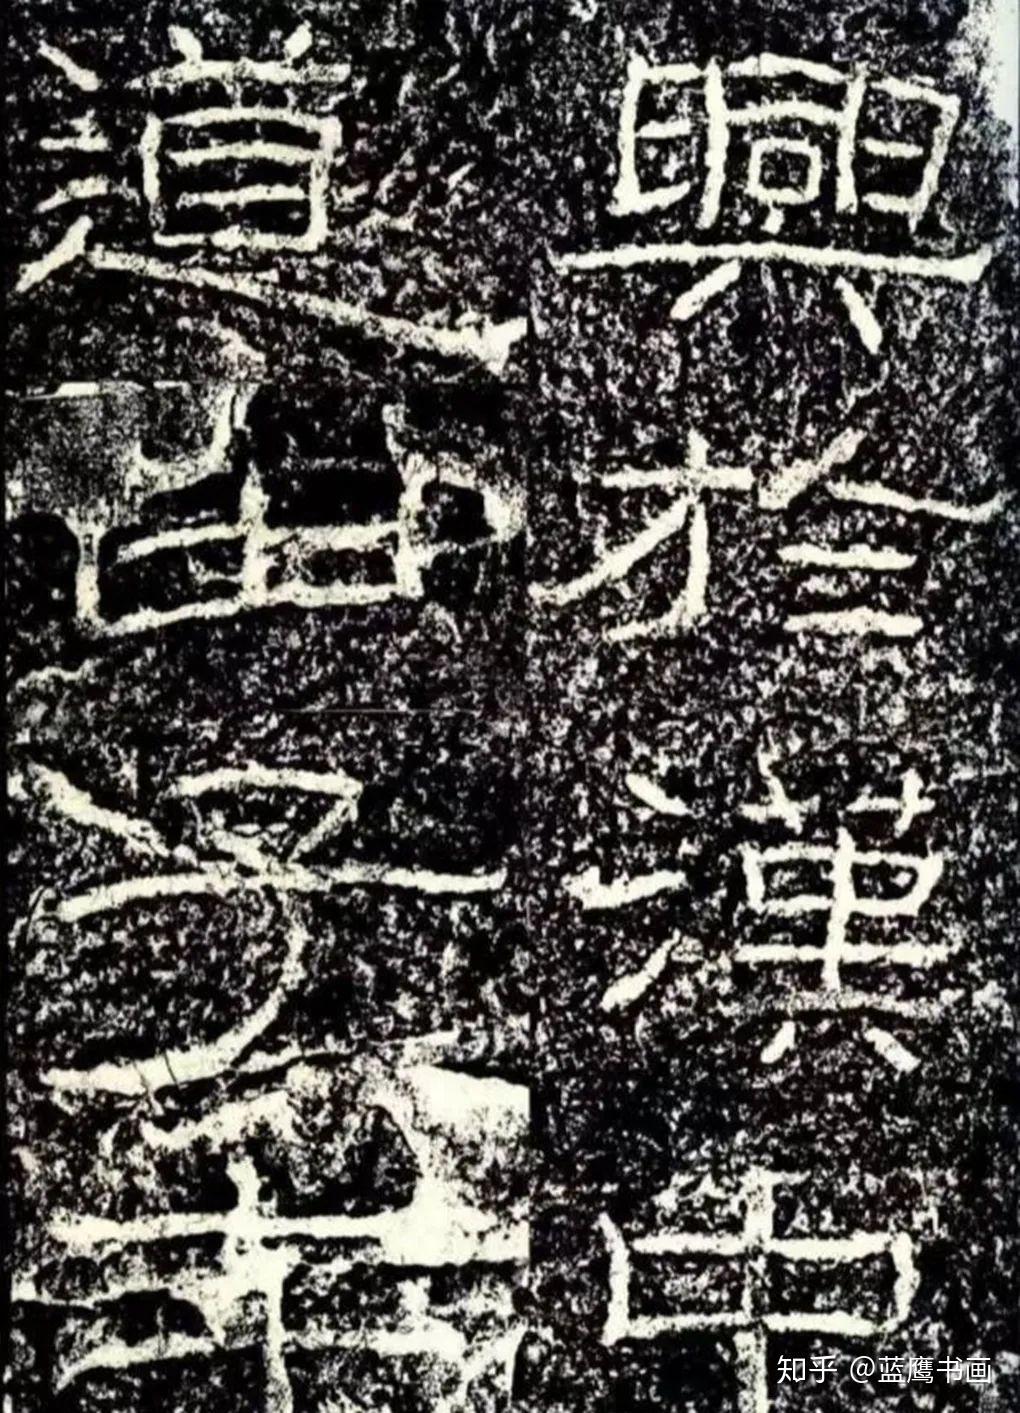 興於漢中
道由子午
知乎 @蓝鹰书画